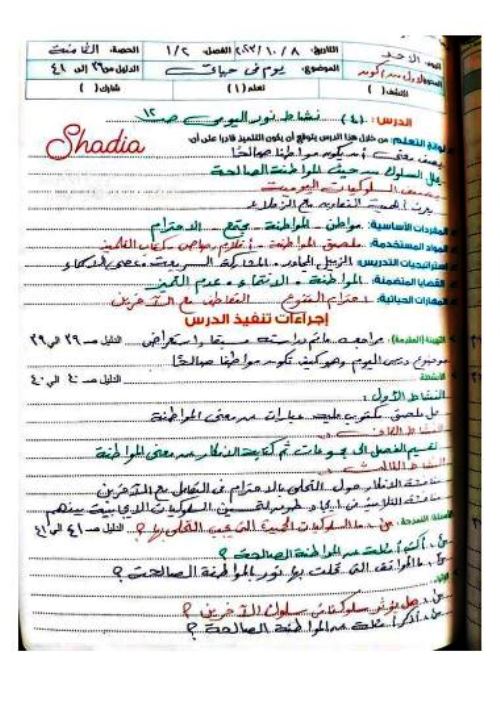 اليوم: الأحد التاريخ: ٨ / ١٠ / ٢٠٢٣ الفصل: ١/٢ الحصة: الثامنة
الموضوع: يوم فى حياتى الدليل من ٣٦ إلى ٤١
اكتشف ( ) تعلم (١) شارك ( )
الدرس: (٤) نشاط نور اليومى ص ١٢
Shadia
نواتج التعلم: من خلال هذا الدرس يتوقع أن يكون التلميذ قادرا على أن:
يصف معنى أن يكون مواطنا صالحا
يحلل السلوك من حيث المواطنة الصالحة
يصف السلوكيات اليومية
يدرك أهمية التعاون مع الزملاء
المفردات الأساسية: مواطن - المواطنة - مجتمع - الاحترام
المواد المستخدمة: ملصق المواطنة - أقلام رصاص - كتاب التلميذ
استراتيجيات التدريس: الزميل المجاور - المشاركة السريعة - عصى الأسماء
القضايا المتضمنة: المواطنة - الانتماء - عدم التميز
المهارات الحياتية: احترام التنوع - التعاطف مع الآخرين
إجراءات تنفيذ الدرس
التهيئة (المقدمة): مراجعه ماتم دراسته مسبقا واستعراض الدليل صـ ٣٩ الي ٣٩
موضوع درس اليوم وهو كيف تكون مواطنا صالحا
الأنشطة الدليل صـ ٤٠ الي ٤٠
النشاط الأول:
عمل ملصق مكتوب عليه عبارات عن معنى المواطنة
النشاط الثانى:
تقسيم الفصل الى مجموعات ثم كتابة الأفكار عن معنى المواطنة
النشاط الثالث:
مناقشة الأفكار حول التحلى بالاحترام فى التعامل مع الآخرين
مناقشة التلاميذ فى السلوكيات الايجابية بينهم
الأسئلة المتدرجة: س- ما السلوكيات الحميدة التى يجب التحلى بها ؟ الدليل صـ ٤١ الي ٤١
س- أكتب أمثلة عن المواطنة الصالحة ؟
س- ما المواقف التى تحلت بها نور بالمواطنة الصالحة ؟
س- هل يؤثر سلوكك على سلوك الآخرين ؟
س- أذكر أمثلة عن المواطنة الصالحة ؟